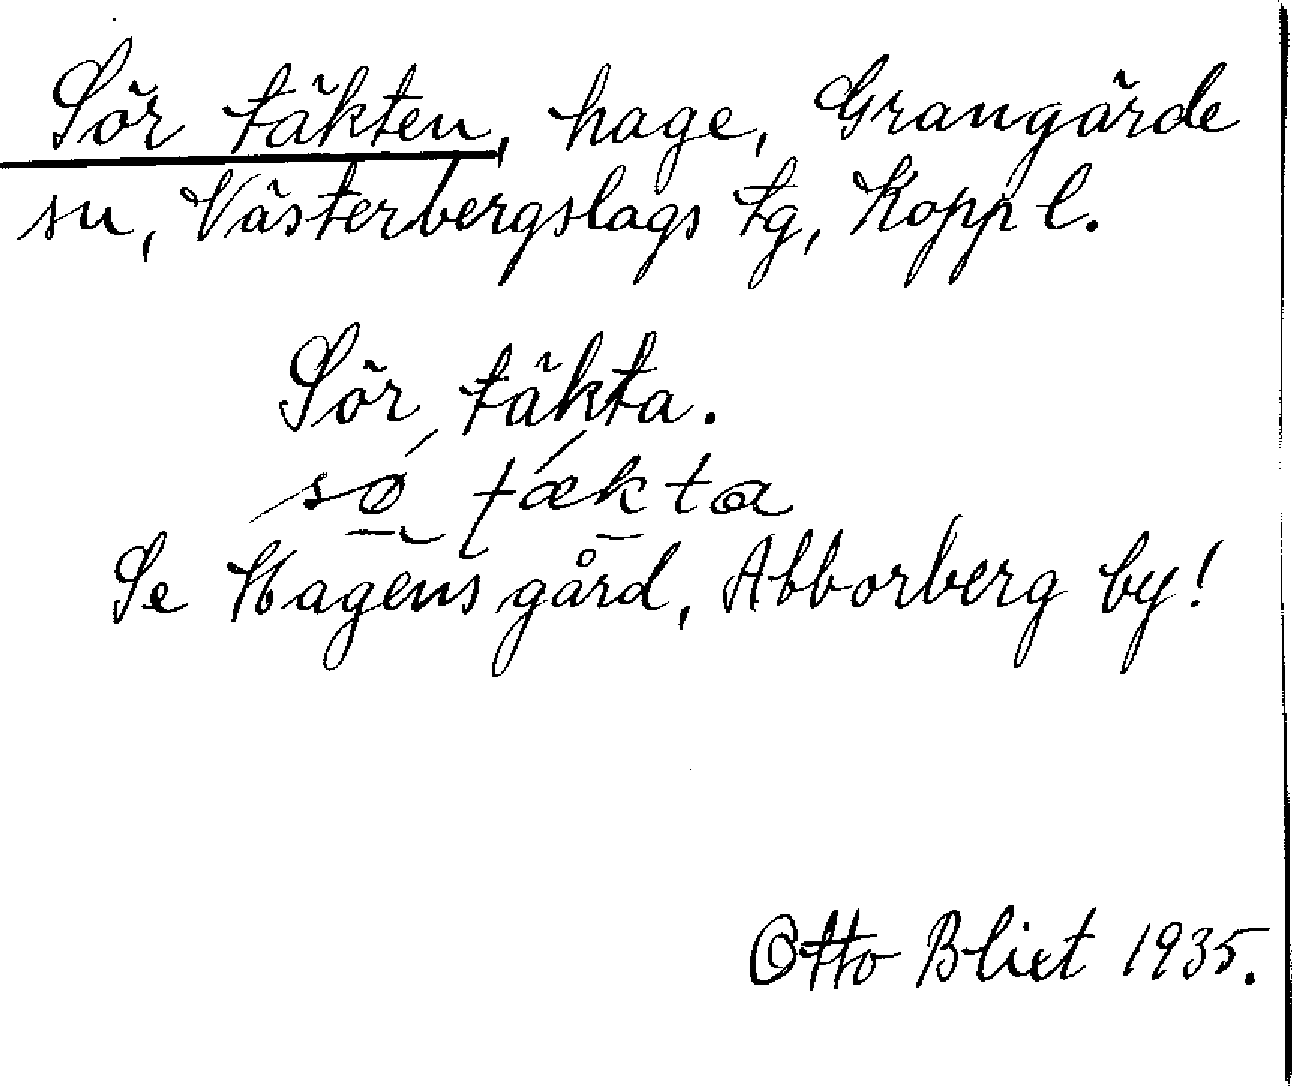 Sör täkten, hage, Grangärde
sn, Västerbergslags tg, Kopp l.
Sör täkta.
sø ʈækta
Se Hagens gård, Abborberg by!
Otto Blixt 1935.